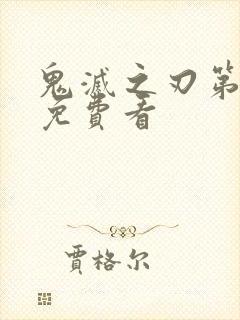 鬼滅之刃第
免費看
賈格尔